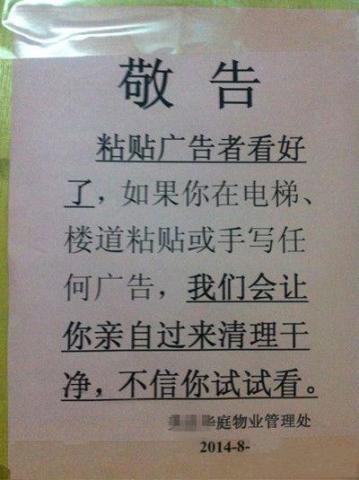 敬 告
粘贴广告者看好
了，如果你在电梯、
楼道粘贴或手写任
何广告，我们会让
你亲自过来清理干
净，不信你试试看。
庭物业管理处
2014-8-